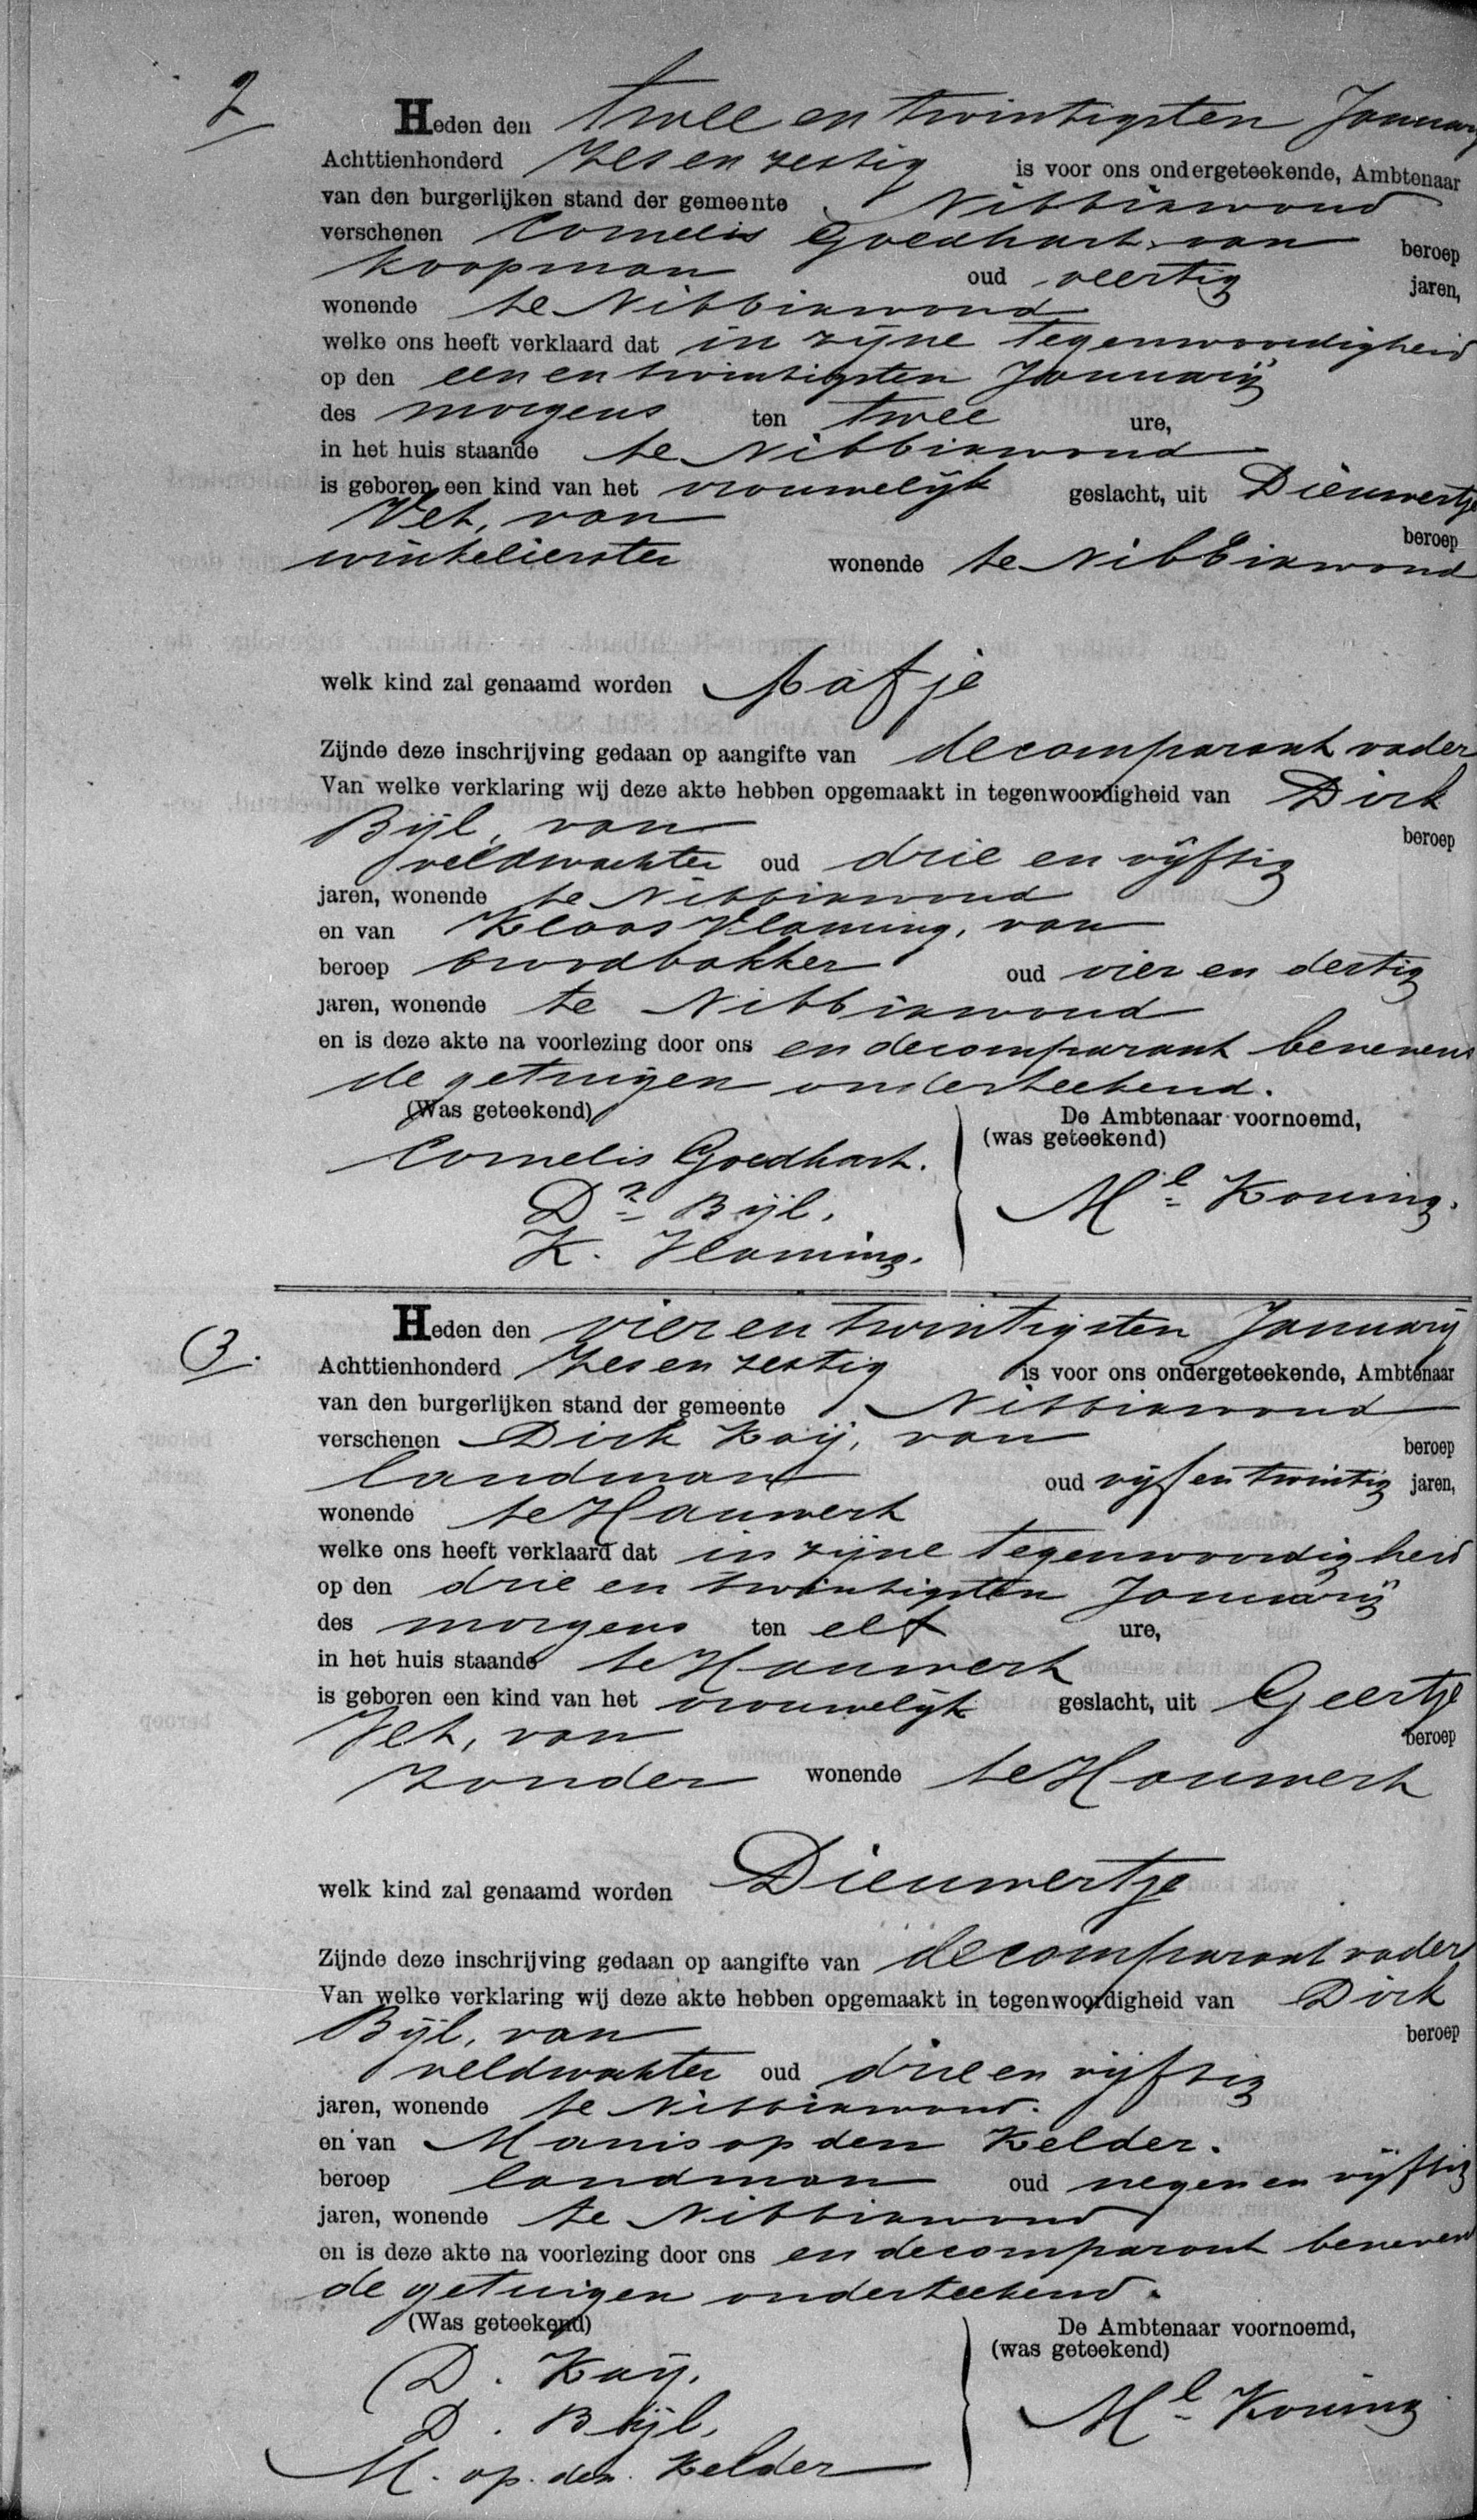 2
Heden den twee en twintigsten January
Achttienhonderd zes en zestig is voor ons ondergeteekende, Ambtenaar
van den burgerlijken stand der gemeente Nibbixwoud
verschenen Cornelis Goedhart, van beroep
koopman oud veertig jaren,
wonende te Nibbixwoud
welke ons heeft verklaard dat in zijne tegenwoordigheid
op den een en twintigsten Januarij
des morgens ten twee ure,
in het huis staande te Nibbixwoud
is geboren een kind van het vrouwelijk geslacht, uit Dieuwertje
Vet, van beroep
winkelierster wonende te Nibbixwoud
welk kind zal genaamd worden Aafje
Zijnde deze inschrijving gedaan op aangifte van de comparant vader
Van welke verklaring wij deze akte hebben opgemaakt in tegenwoordigheid van Dirk
Bijl, van beroep
veldwachter oud drie en vijftig
jaren, wonende te Nibbixwoud
en van Klaas Vlaming, van
beroep broodbakker oud vier en dertig
jaren, wonende te Nibbixwoud
en is deze akte na voorlezing door ons en de comparant benevens
de getuigen onderteekend.
(Was geteekend) De Ambtenaar voornoemd,
(was geteekend)
Cornelis Goedhart.
Dk Bijl. Ml Koning.
K. Vlaming.
3.
Heden den vier en twintigsten Januarij
Achttienhonderd zes en zestig is voor ons ondergeteekende, Ambtenaar
van den burgerlijken stand der gemeente Nibbixwoud
verschenen Dirk Kaij, van beroep
landman oud vijf en twintig jaren,
wonende te Hauwert
welke ons heeft verklaard dat in zijne tegenwoordigheid
op den drie en twintigsten Januarij
des morgens ten elf ure,
in het huis staande te Hauwert
is geboren een kind van het vrouwelijk geslacht, uit Geertje
Vet, van beroep
zonder wonende te Hauwert
welk kind zal genaamd worden Dieuwertje
Zijnde deze inschrijving gedaan op aangifte van de comparant vader
Van welke verklaring wij deze akte hebben opgemaakt in tegenwoordigheid van Dirk
Bijl, van beroep
veldwachter oud drie en vijftig
jaren, wonende te Nibbixwoud.
en van Manis op den Kelder.
beroep landman oud negen en vijftig
jaren, wonende te Nibbixwoud
en is deze akte na voorlezing door ons en de comparant benevens
de getuigen onderteekend.
(Was geteekend) De Ambtenaar voornoemd,
(was geteekend)
D. Kaij.
D. Bijl. Ml Koning
M. op. den. Kelder